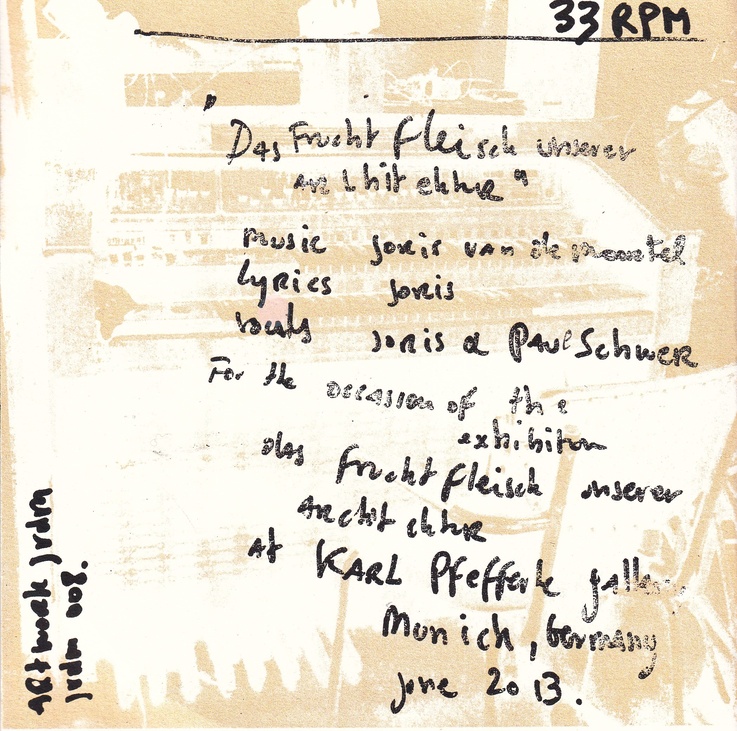 33 RPM
"Das Fruchtfleisch unserer
architektur"
music joris van de moortel
lyrics joris
vocals joris & PAUL SCHWER
For the occasion of the
exhibition
das fruchtfleisch unserer
architektur
at KARL Pfefferle gallery
Munich, Germany
june 2013.
ARtwork jvdm
jvdm 008.